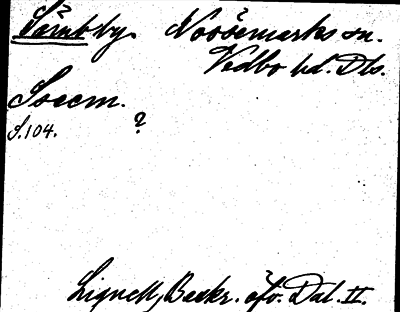 Tärnt by. Nössemarks sn.
Vedbo hd. Dls.
Soem.
S. 104. ?
Lignell, Beskr. öfv. Dal. II.